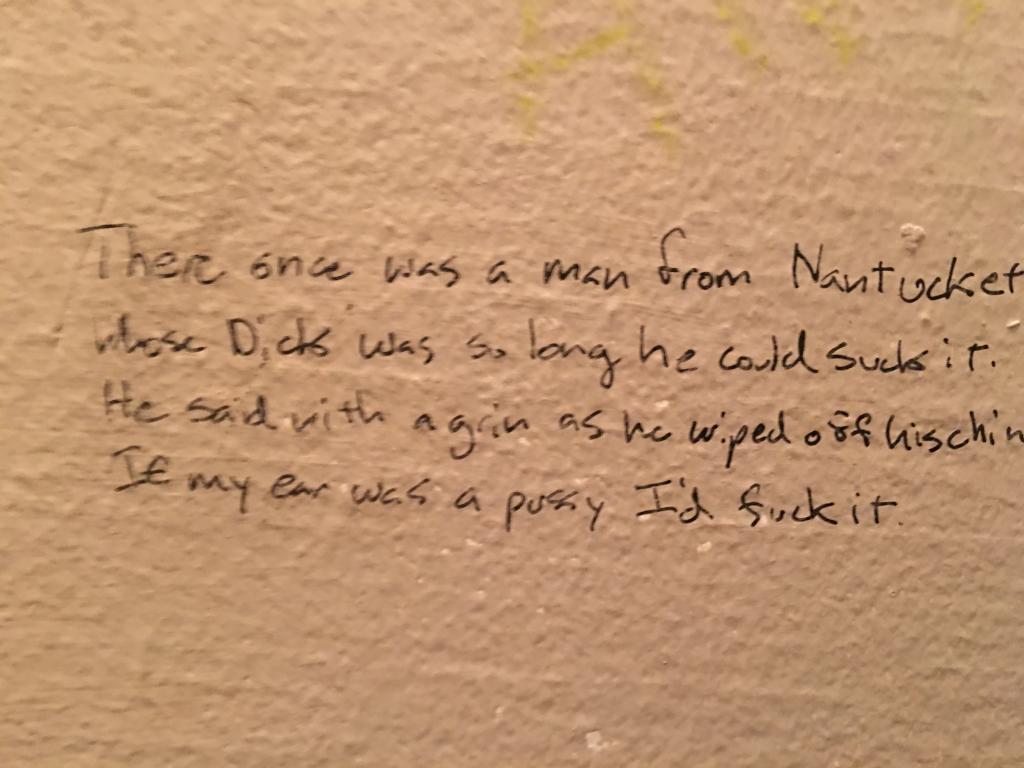 There once was a man from Nantucket
whose Dick was so long he could suck it.
He said with a grin as he wiped off his chin
If my ear was a pussy I'd fuck it.